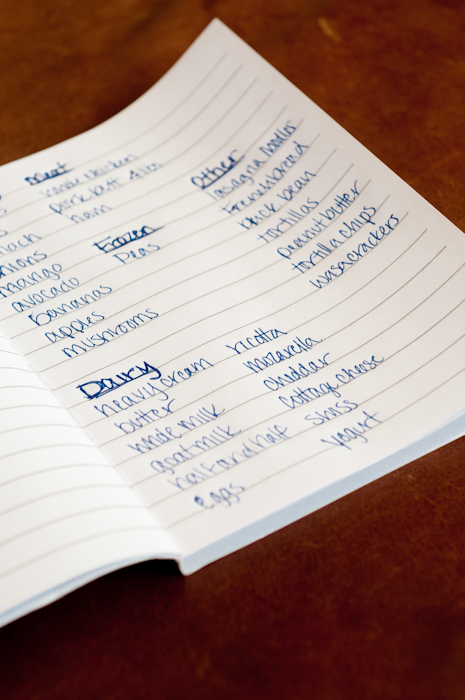 Meat
whole chicken
pork butt
ham
Frozen
Peas
Other
lasagna noodles
french bread
black bean
tortillas
peanut butter
tortilla chips
wasa crackers
mango
avocado
bananas
apples
mushrooms
Dairy
heavy cream
butter
whole milk
goat milk
half and half
eggs
ricotta
mozarella
cheddar
cottage cheese
swiss
yogurt